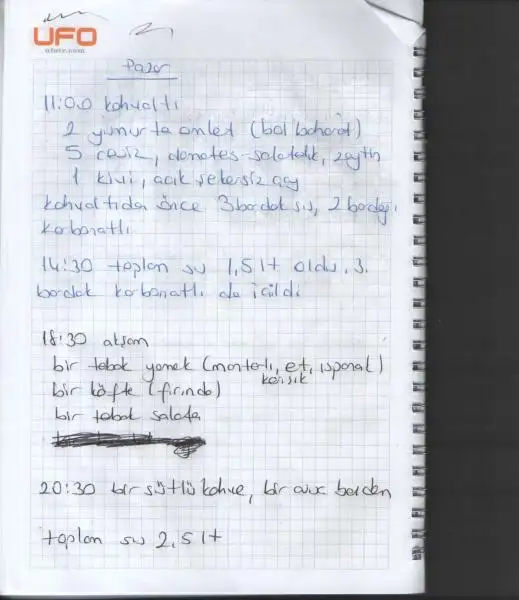 UFO
Pazar
11:00 kahvaltı
2 yumurta omlet (bol baharat)
5 ceviz, domates-salatalık, zeytin
1 kivi, açık şekersiz çay
kahvaltıdan önce 3 bardak su, 2 bardağı
karbonatlı
14:30 toplam su 1,5 lt oldu, 3.
bardak karbonatlı da içildi
18:30 akşam
bir tabak yemek (mantarlı, et, ıspanak)
karışık
bir köfte (fırında)
bir tabak salata
20:30 bir sütlü kahve, bir avuç badem
toplam su 2,5 lt